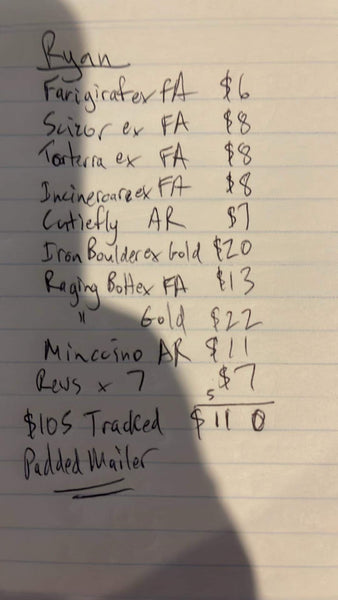 Ryan
Farigiraf ex FA $6
Scizor ex FA $8
Torterra ex FA $8
Incineroar ex FA $8
Cutiefly AR $7
Iron Boulder ex Gold $20
Raging Bolt ex FA $13
" Gold $22
Minccino AR $11
Revs x 7 $7
5
$105 Tracked $110
Padded Mailer